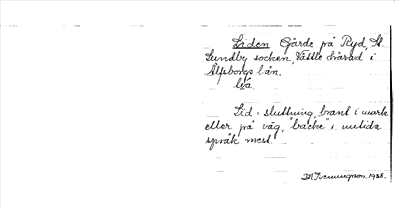 Liden Gärde på Ryd, St.
Lundby socken, Vättle härad i
Älfsborgs län.
lia
Lid = sluttning, brant i mark
eller på väg, "backe" i nutida
språk mest.
1928.